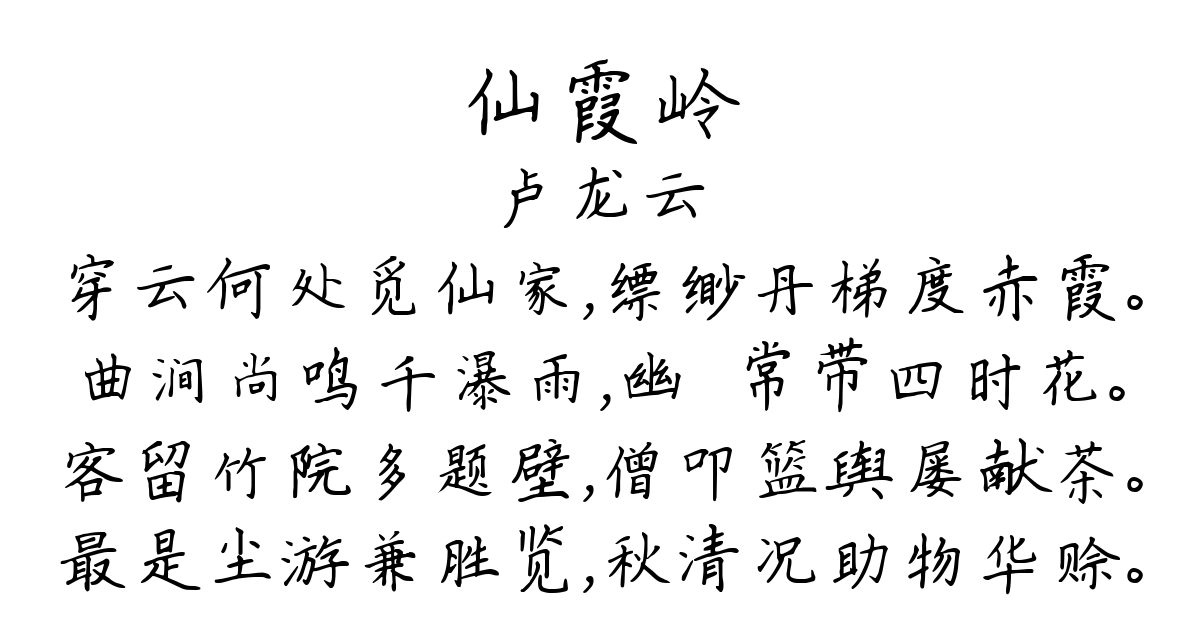 仙霞岭
卢龙云
穿云何处觅仙家,缥缈丹梯度赤霞。
曲涧尚鸣千瀑雨,幽 常带四时花。
客留竹院多题壁,僧叩篮舆屡献茶。
最是尘游兼胜览,秋清况助物华赊。